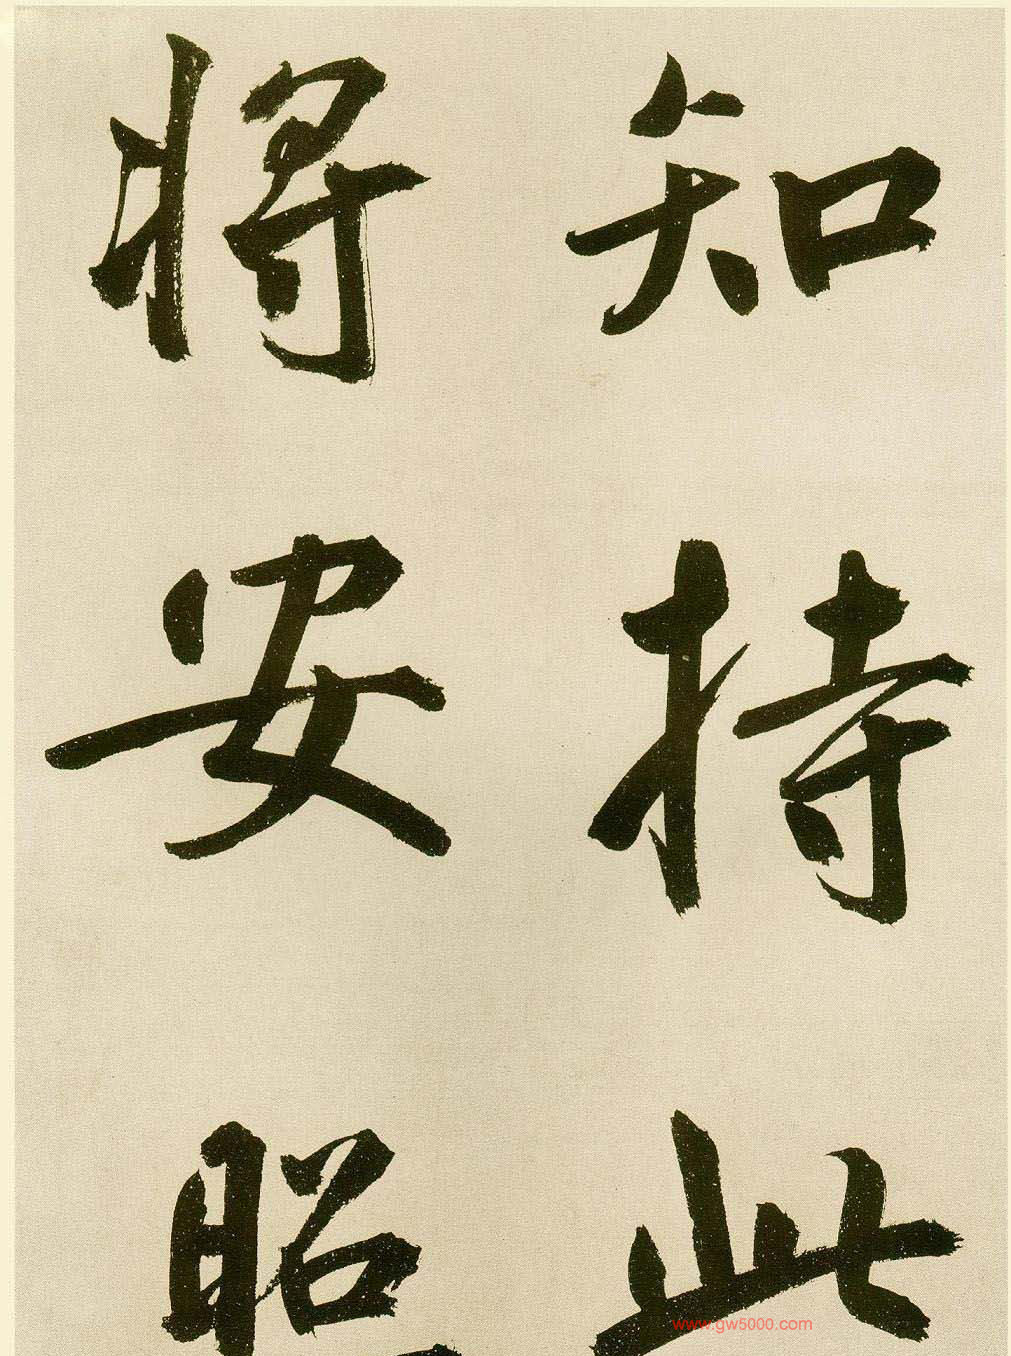 知持此
将安昭
www.gw5000.com